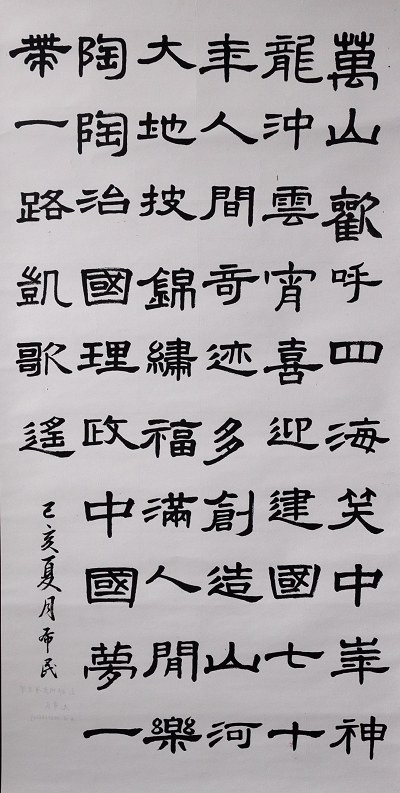 萬山歡呼四海笑中華神
龍沖雲宵喜迎建國七十
年人間奇迹多創造山河
大地披錦繡福滿人間樂
陶陶治國理政中國夢一
帶一路凱歌遙
己亥夏月布民